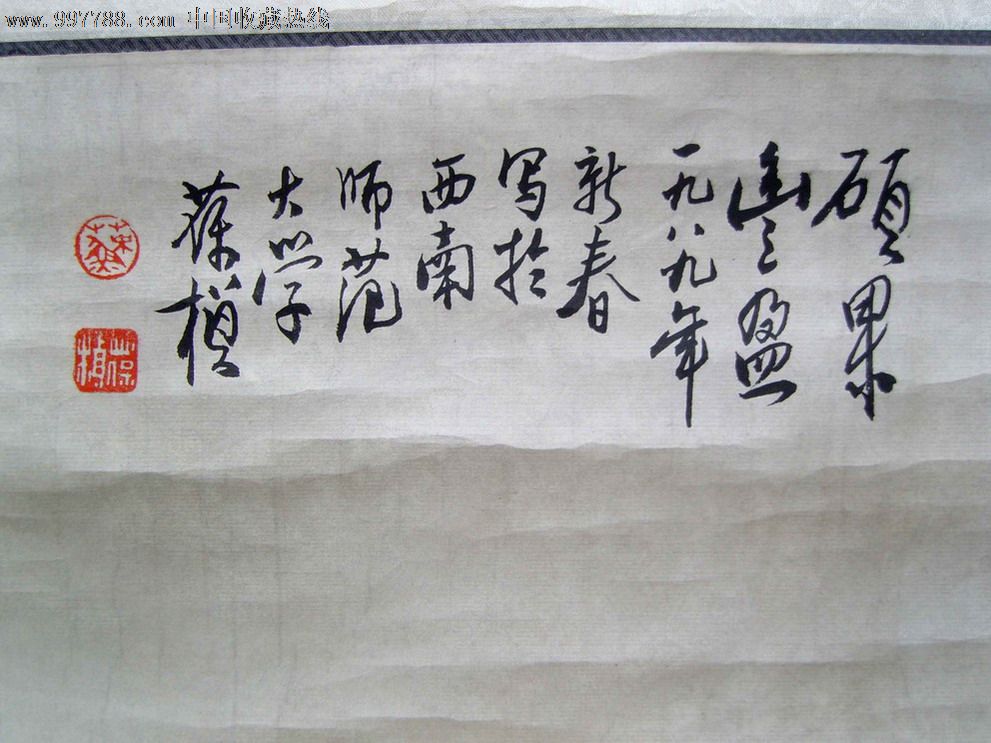 www.997788.com 中国收藏热线
硕果
豐盈
一九八九年
新春
写於
西南
师范
大学
葆楨